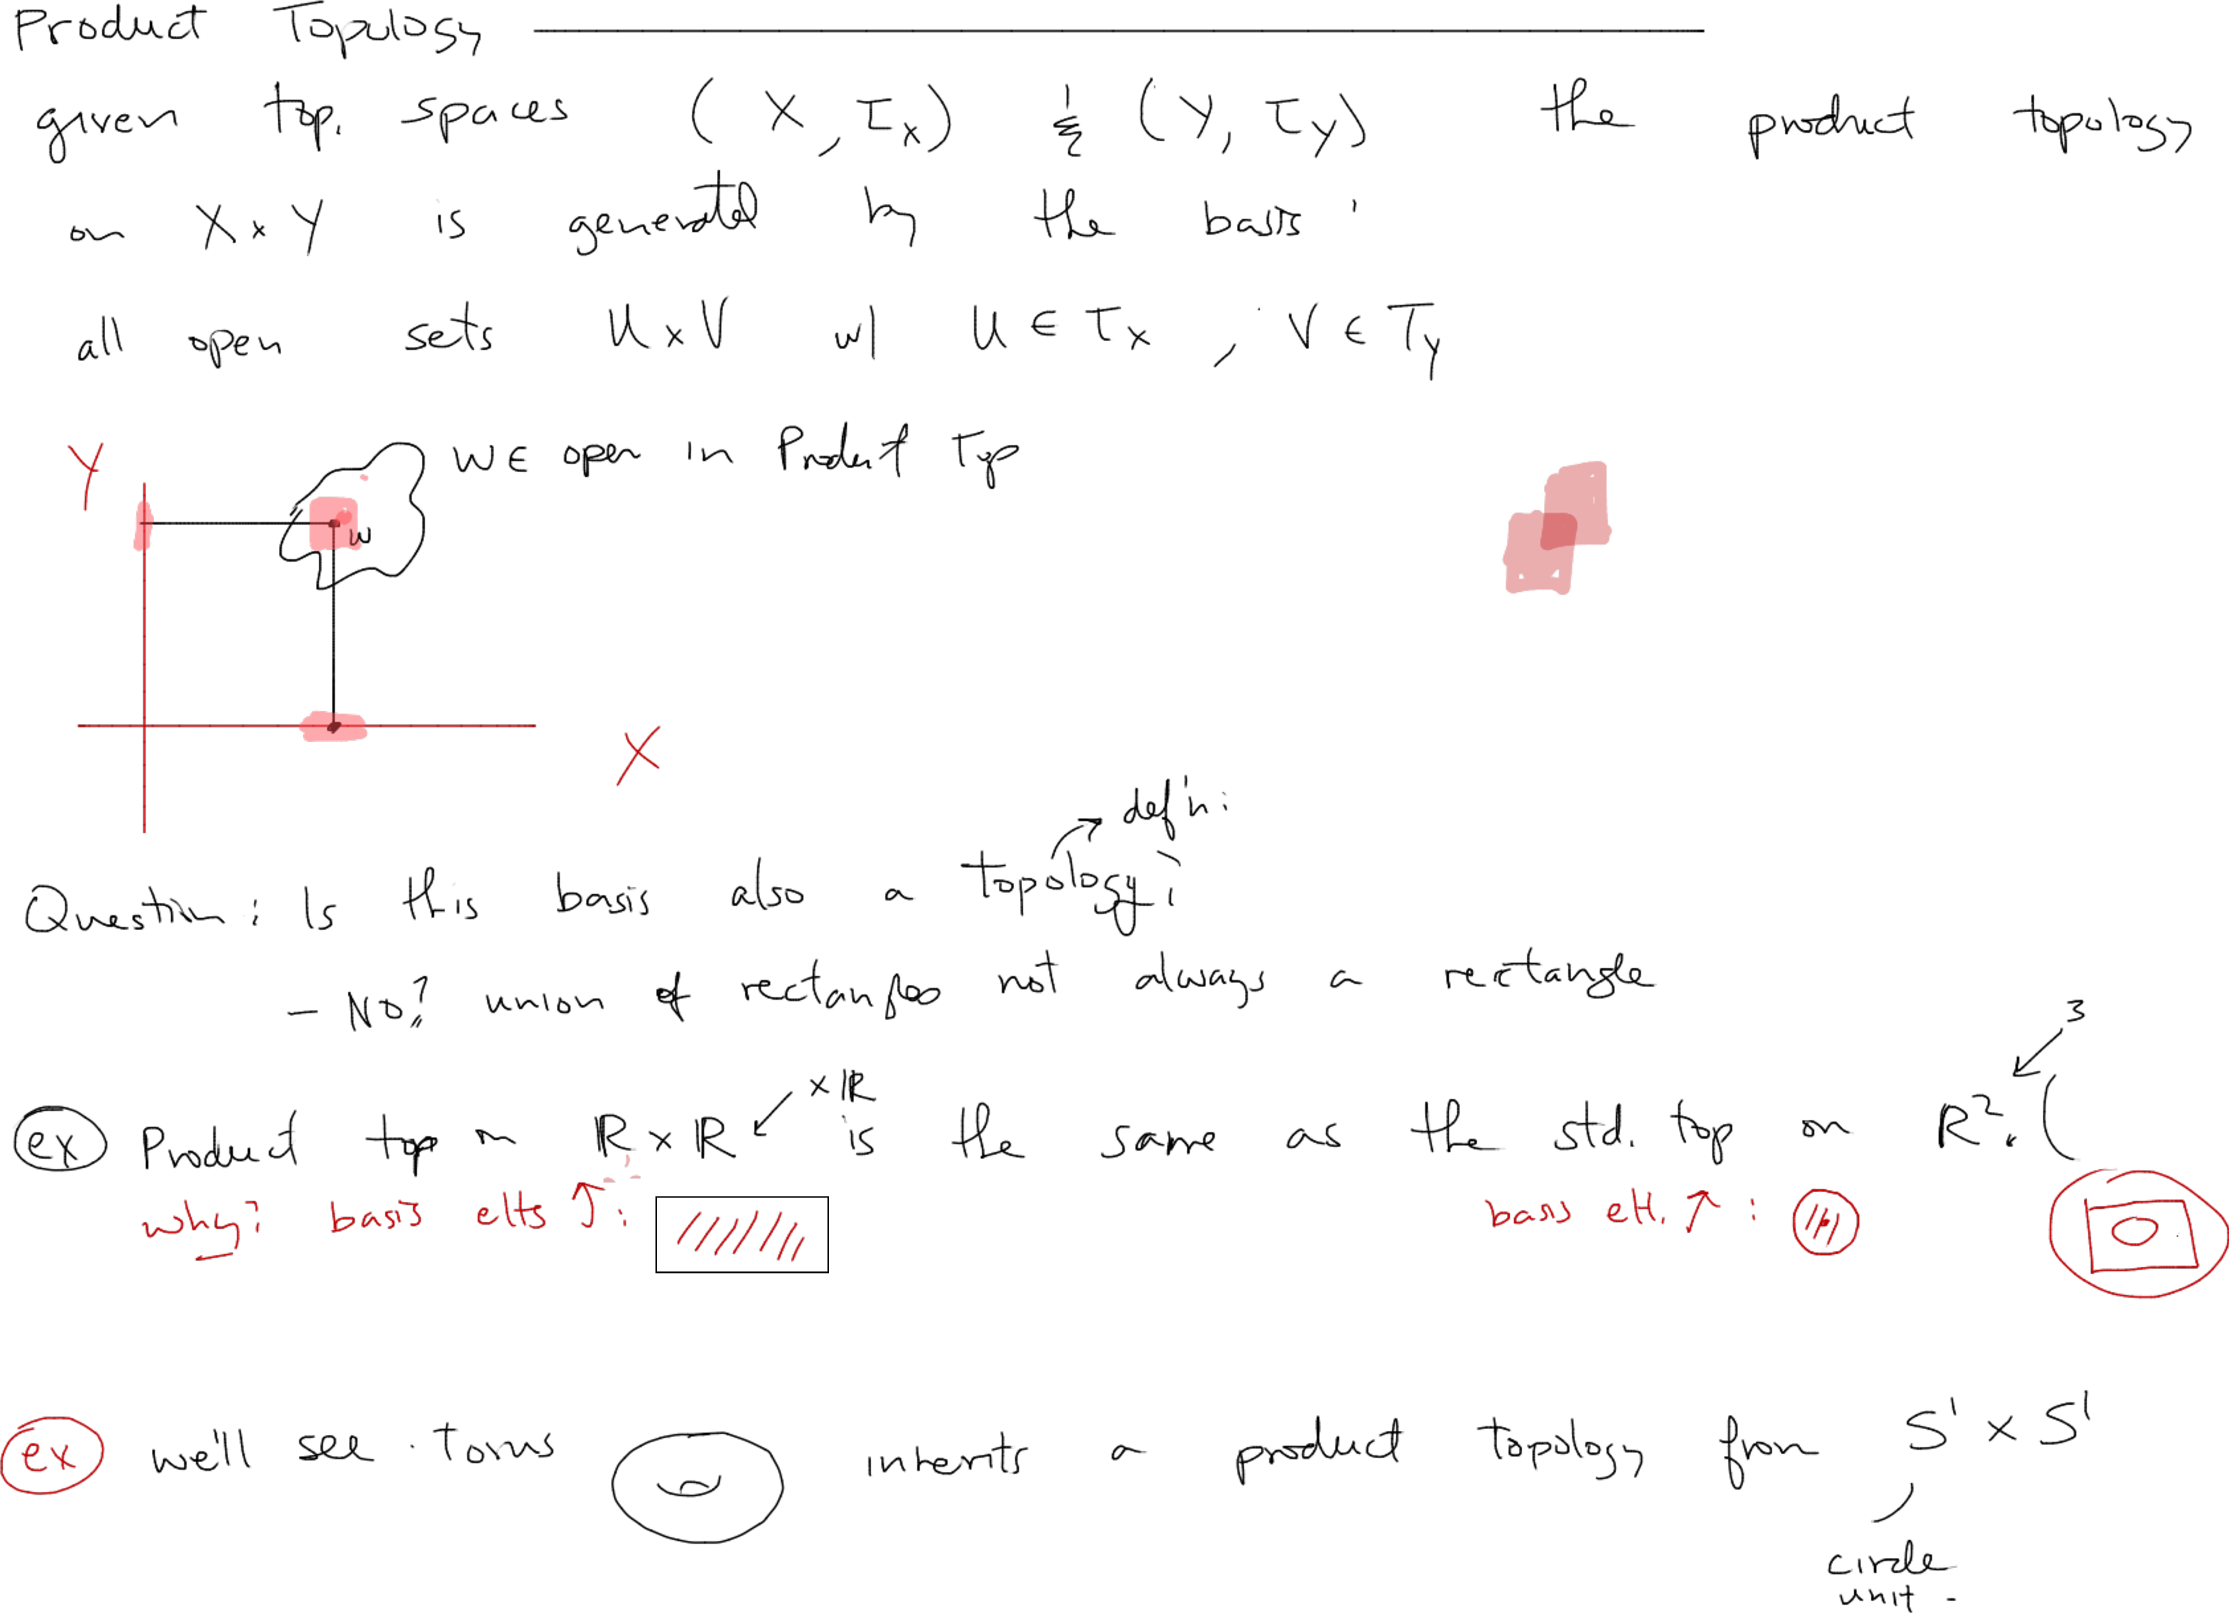 Product Topology
given top. spaces (X, τ_X) & (Y, τ_Y) the product topology
on X × Y is generated by the basis:
all open sets U × V w/ U ∈ τ_X, V ∈ τ_Y
Y
W ∈ open in Product Top
w
X
def'n:
Question: Is this basis also a topology?
- No! union of rectangles not always a rectangle
3
× ℝ
ex Product top on ℝ × ℝ is the same as the std. top on ℝ². (
why? basis elts ↑: basis elt. ↑:
ex we'll see torus inherits a product topology from S¹ × S¹
circle
unit